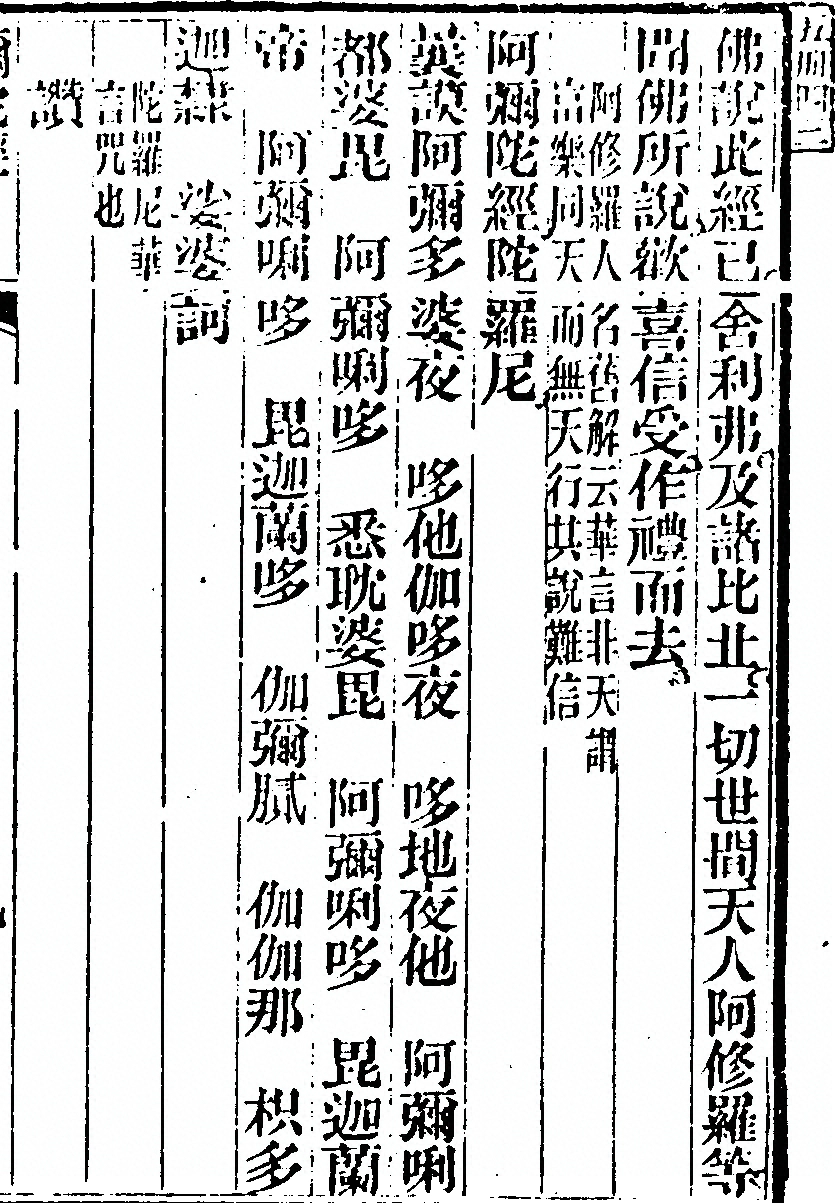 佛說此經已舍利弗及諸比丘一切世間天人阿修羅等
聞佛所說歡喜信受作禮而去
阿修羅人名舊解云華言非天謂
富樂同天而無天行共說難信
阿彌陀經陀羅尼
曩謨阿彌多婆夜　哆他伽哆夜　哆地夜他　阿彌唎
都婆毘　阿彌唎哆　悉耽婆毘　阿彌唎哆　毘迦蘭
帝　阿彌唎哆　毘迦蘭哆　伽彌膩　伽伽那　枳多
迦隸　娑婆訶
陀羅尼華
言咒也
讚